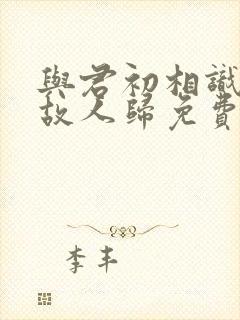 與君初相識
故人歸免費
李丰